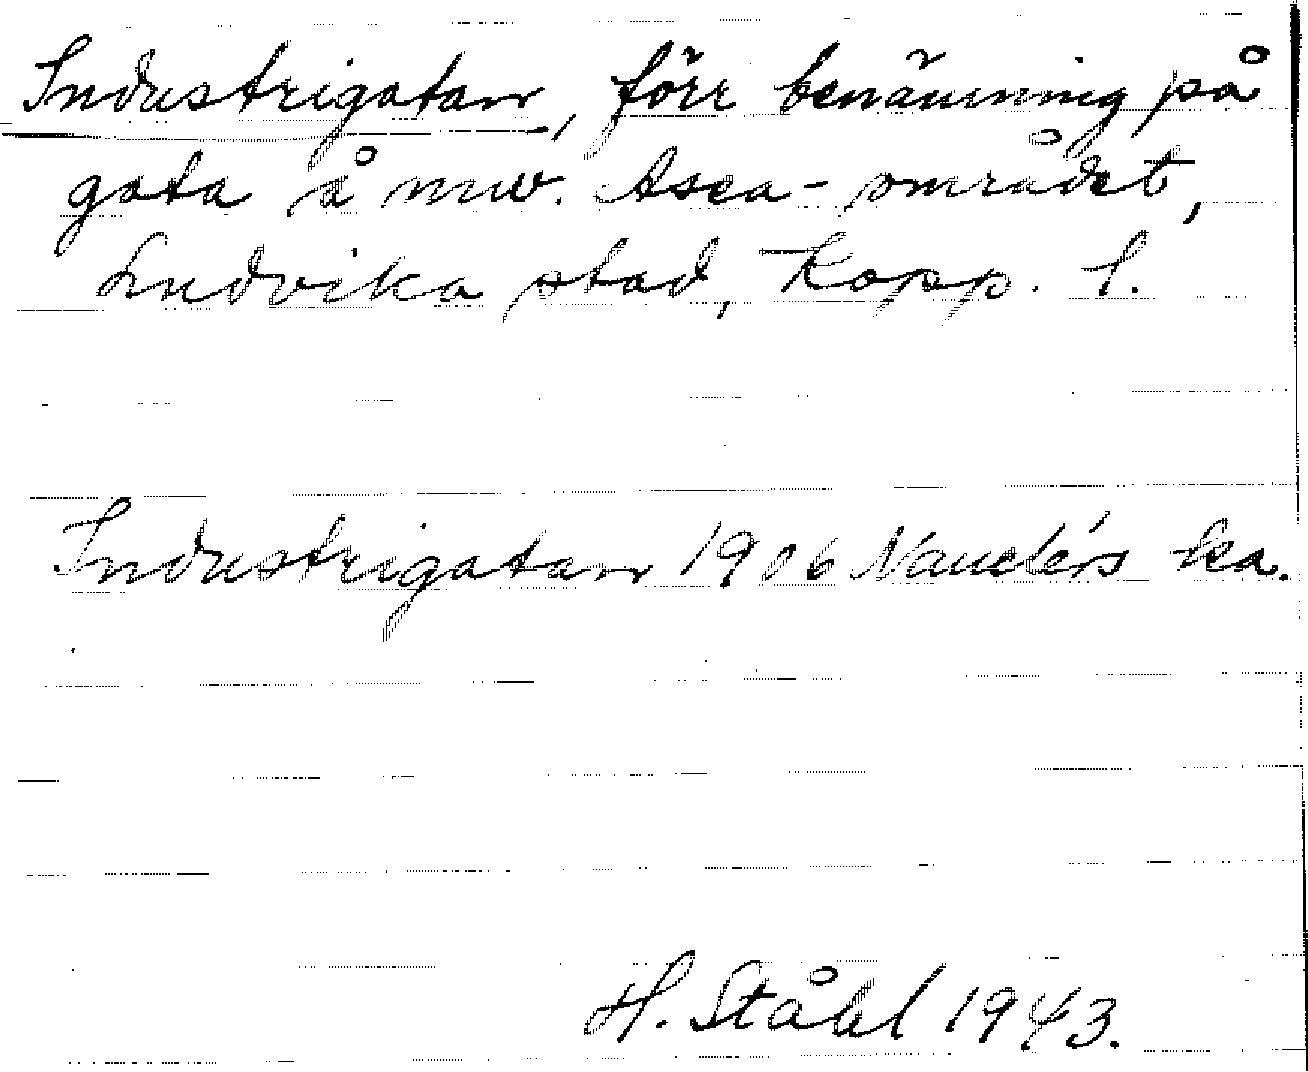 Industrigatan, förr benämning på
gata å nuv. Asea-området,
Ludvika stad, Kopp. l.
Industrigatan 1906 Nauclérs ka.
H. Ståhl 1943.